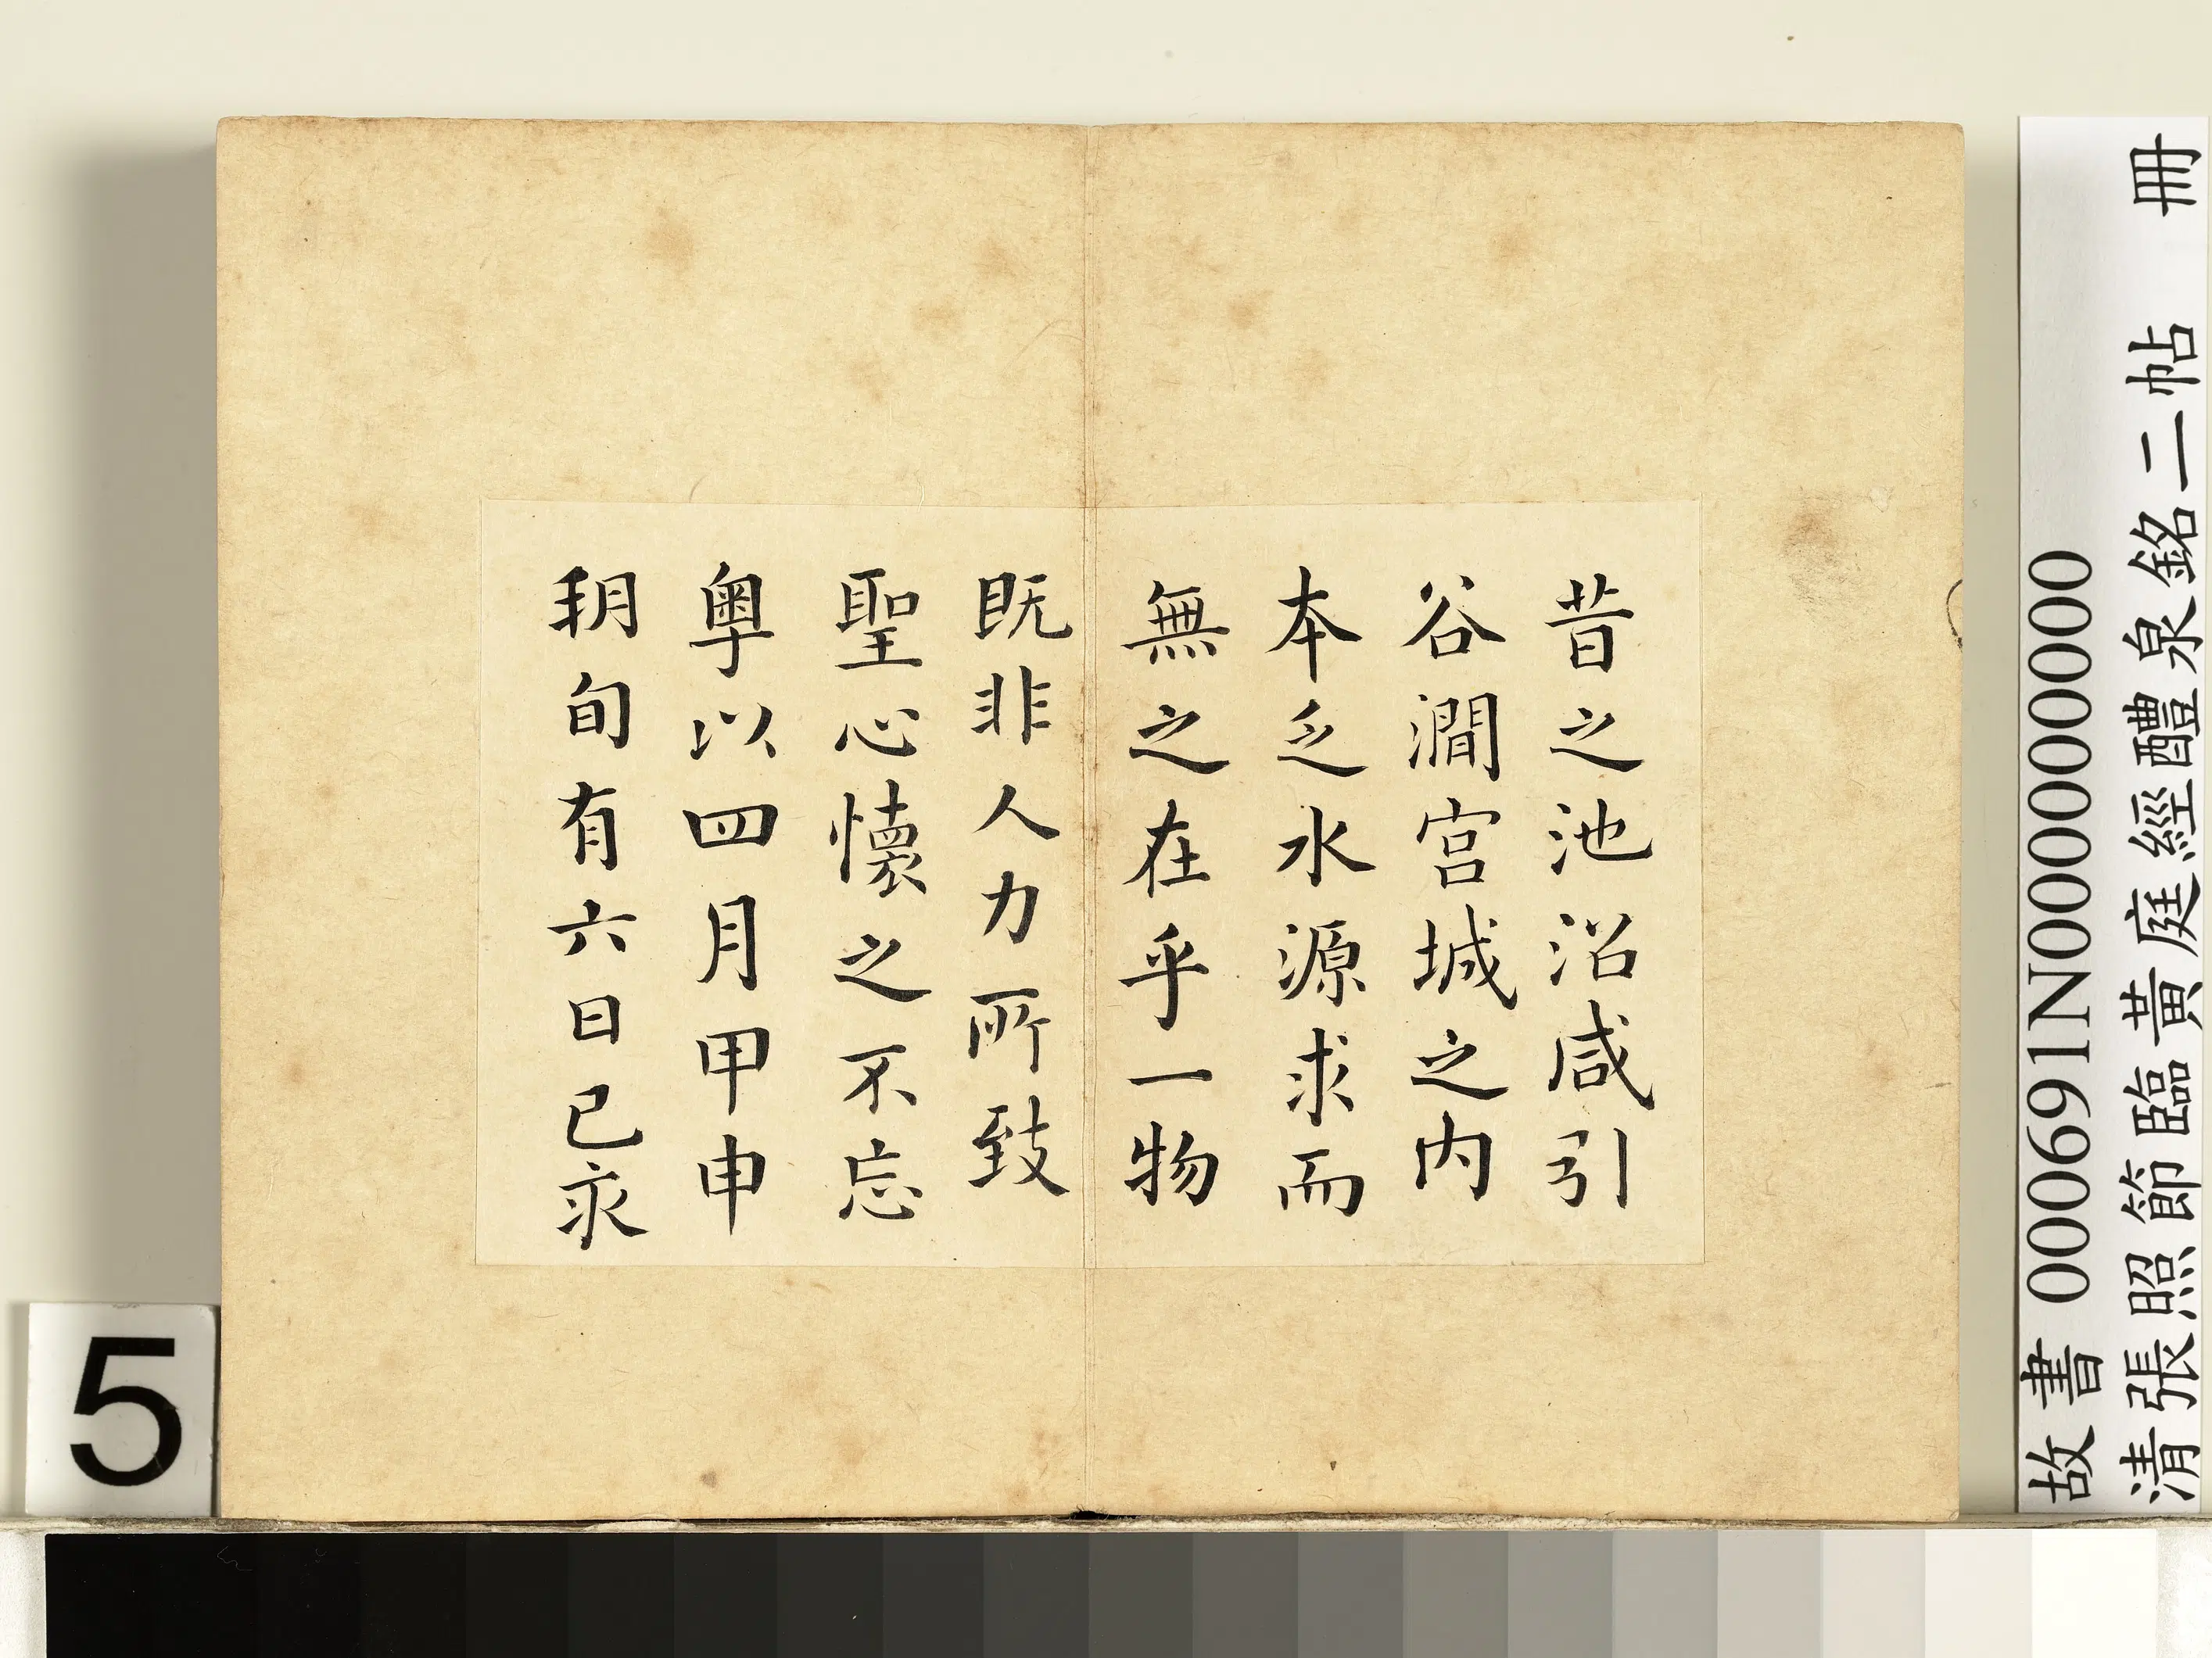 昔之池沼咸引
谷澗宮城之內
本乏水源求而
無之在乎一物
既非人力所致
聖心懷之不忘
粵以四月甲申
朔旬有六日己亥
故書 000691N000000000
清張照節臨黃庭經醴泉銘二帖 冊
5